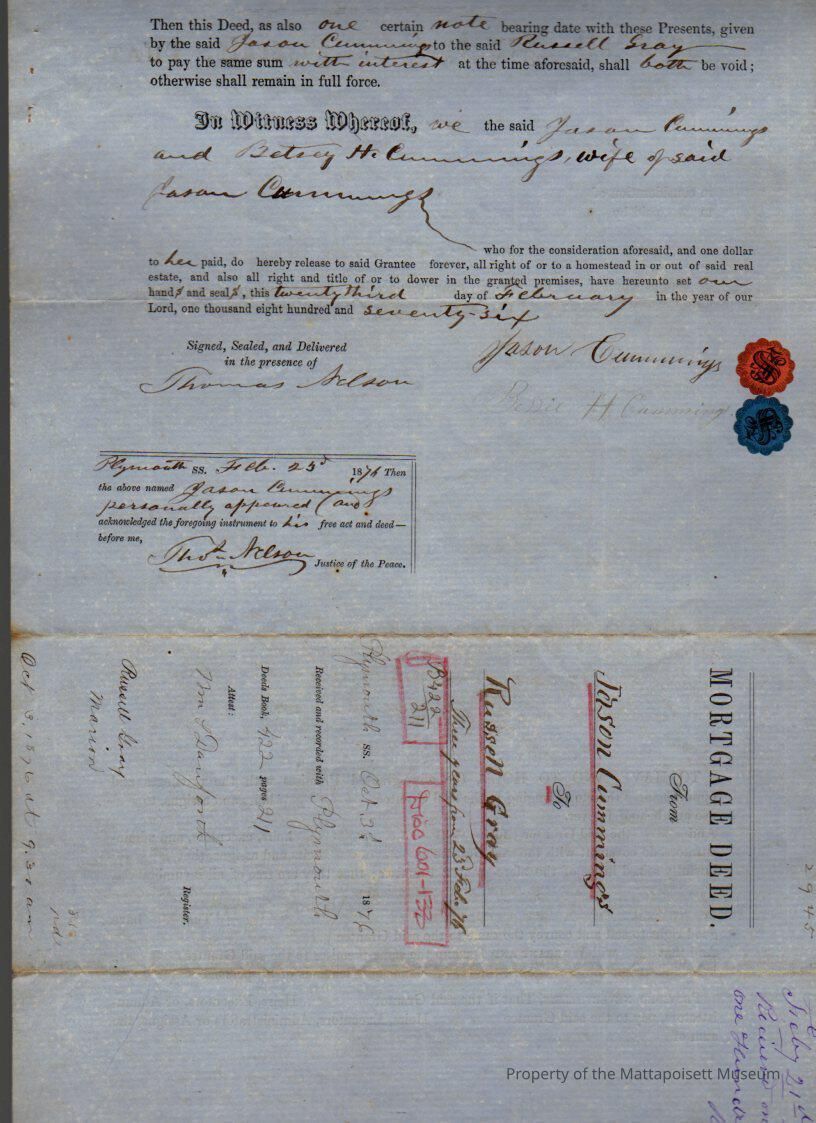 Then this Deed, as also one certain note bearing date with these Presents, given
by the said Jason Cummings to the said Russell Gray
to pay the same sum with interest at the time aforesaid, shall both be void;
otherwise shall remain in full force.
In Witness Whereof, we the said Jason Cummings
and Betsey H. Cummings, wife of said
Jason Cummings
who for the consideration aforesaid, and one dollar
to her paid, do hereby release to said Grantee forever, all right of or to a homestead in or out of said real
estate, and also all right and title of or to dower in the granted premises, have hereunto set our
hands and seals, this twenty third day of February in the year of our
Lord, one thousand eight hundred and seventy-six
Signed, Sealed, and Delivered
in the presence of
Thomas Nelson
Jason Cummings
H Cummings
Plymouth ss. Feb. 23d 1876 Then
the above named Jason Cummings
personally appeared and
acknowledged the foregoing instrument to his free act and deed—
before me,
Thos. Nelson
Justice of the Peace.
MORTGAGE DEED.
From
Jason Cummings
To
Russell Gray
Three years from 23d Feb. 76
B422
211
601-130
Plymouth ss. Oct 3d 1876
Received and recorded with Plymouth
Deeds Book, 422 pages 211
Attest:
Wm S Danforth
Register.
Russell Gray
Marion
Oct 3, 1876 at 9.30 am
2945
21d
Received on
one
Property of the Mattapoisett Museum